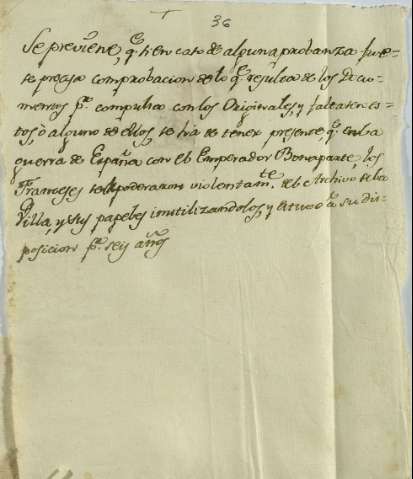 36
Se previene, q.e si en caso de alguna probanza fue-
se precisa comprobacion de lo q.e resulta de los Docu-
mentos p.r compulsa con los Originales, y faltaren es-
tos, ò alguno de ellos, se ha de tener presente, q.e en la
guerra de España con el Emperador Bonaparte, los
Franceses se apoderaron violentam.te del Archivo de la
Villa, y sus papeles inutilizandolos, y estuvo à su dis-
posicion p.r seis años